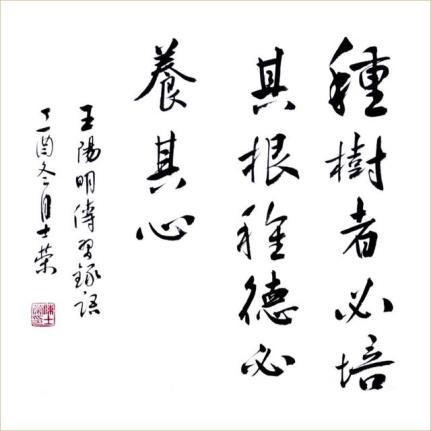 種樹者必培
其根種德必
養其心
王陽明傳習錄語
丁酉冬月士荣